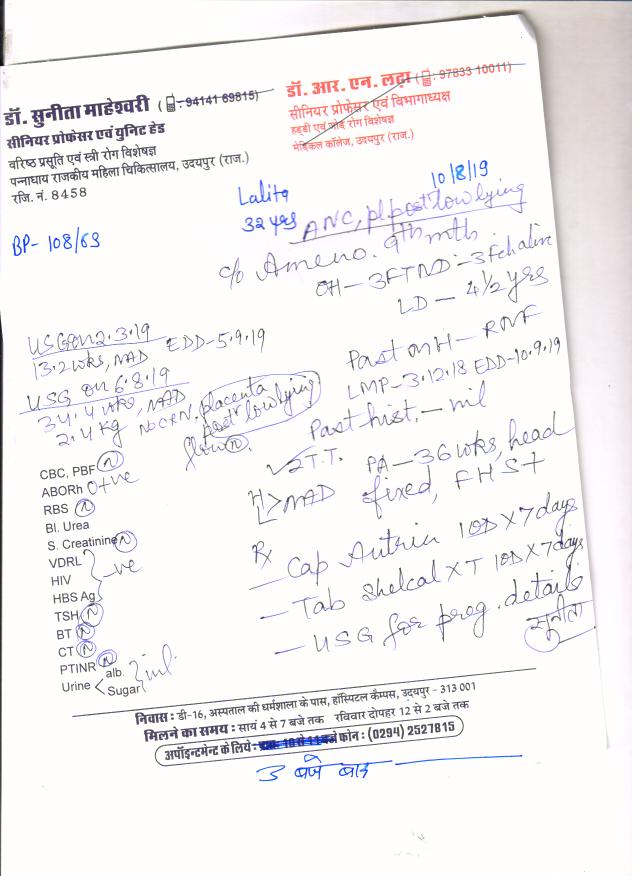 डॉ. सुनीता माहेश्वरी (📱: 94141 69815)
सीनियर प्रोफेसर एवं यूनिट हेड
वरिष्ठ प्रसूति एवं स्त्री रोग विशेषज्ञ
पन्नाधाय राजकीय महिला चिकित्सालय, उदयपुर (राज.)
रजि. नं. 8458
डॉ. आर. एन. लढ़ा (📱: 97833 10011)
सीनियर प्रोफेसर एवं विभागाध्यक्ष
हड्डी एवं जोड़ रोग विशेषज्ञ
मेडिकल कॉलेज, उदयपुर (राज.)
10/8/19
Lalita
32 yrs
BP- 108/63
ANC, pl post low lying
c/o Ameno. 9th mth.
OH - 3FTND - 3F ch alive
LD - 4 1/2 yrs
USG on 2.3.19
13.2 wks, NAD EDD-5.9.19
USG on 6.8.19
34.4 wks, NAD
2.4 kg placenta
post low lying
flow N
Past MH - RNF
LMP-3.12.18 EDD-10.9.19
Past hist. - nil
✓2T.T. PA - 36 wks, head
fixed, FHS+
H
L > NAD
CBC, PBF N
ABORh O+ve
RBS N
Bl. Urea
S. Creatinine N
VDRL
HIV
HBS Ag
-ve
TSH N
BT N
CT N
PTINR N
Urine < alb.
Sugar
nil
Rx
- Cap Autrin 1OD X 7 days
- Tab Shelcal XT 1OD X 7 days
- USG for preg. details
सुनीता
निवास : डी-16, अस्पताल की धर्मशाला के पास, हॉस्पिटल कैम्पस, उदयपुर - 313 001
मिलने का समय : सायं 4 से 7 बजे तक रविवार दोपहर 12 से 2 बजे तक
अपॉइन्टमेन्ट के लिये : 10 से 11 बजे फोन : (0294) 2527815
3 बजे बाद